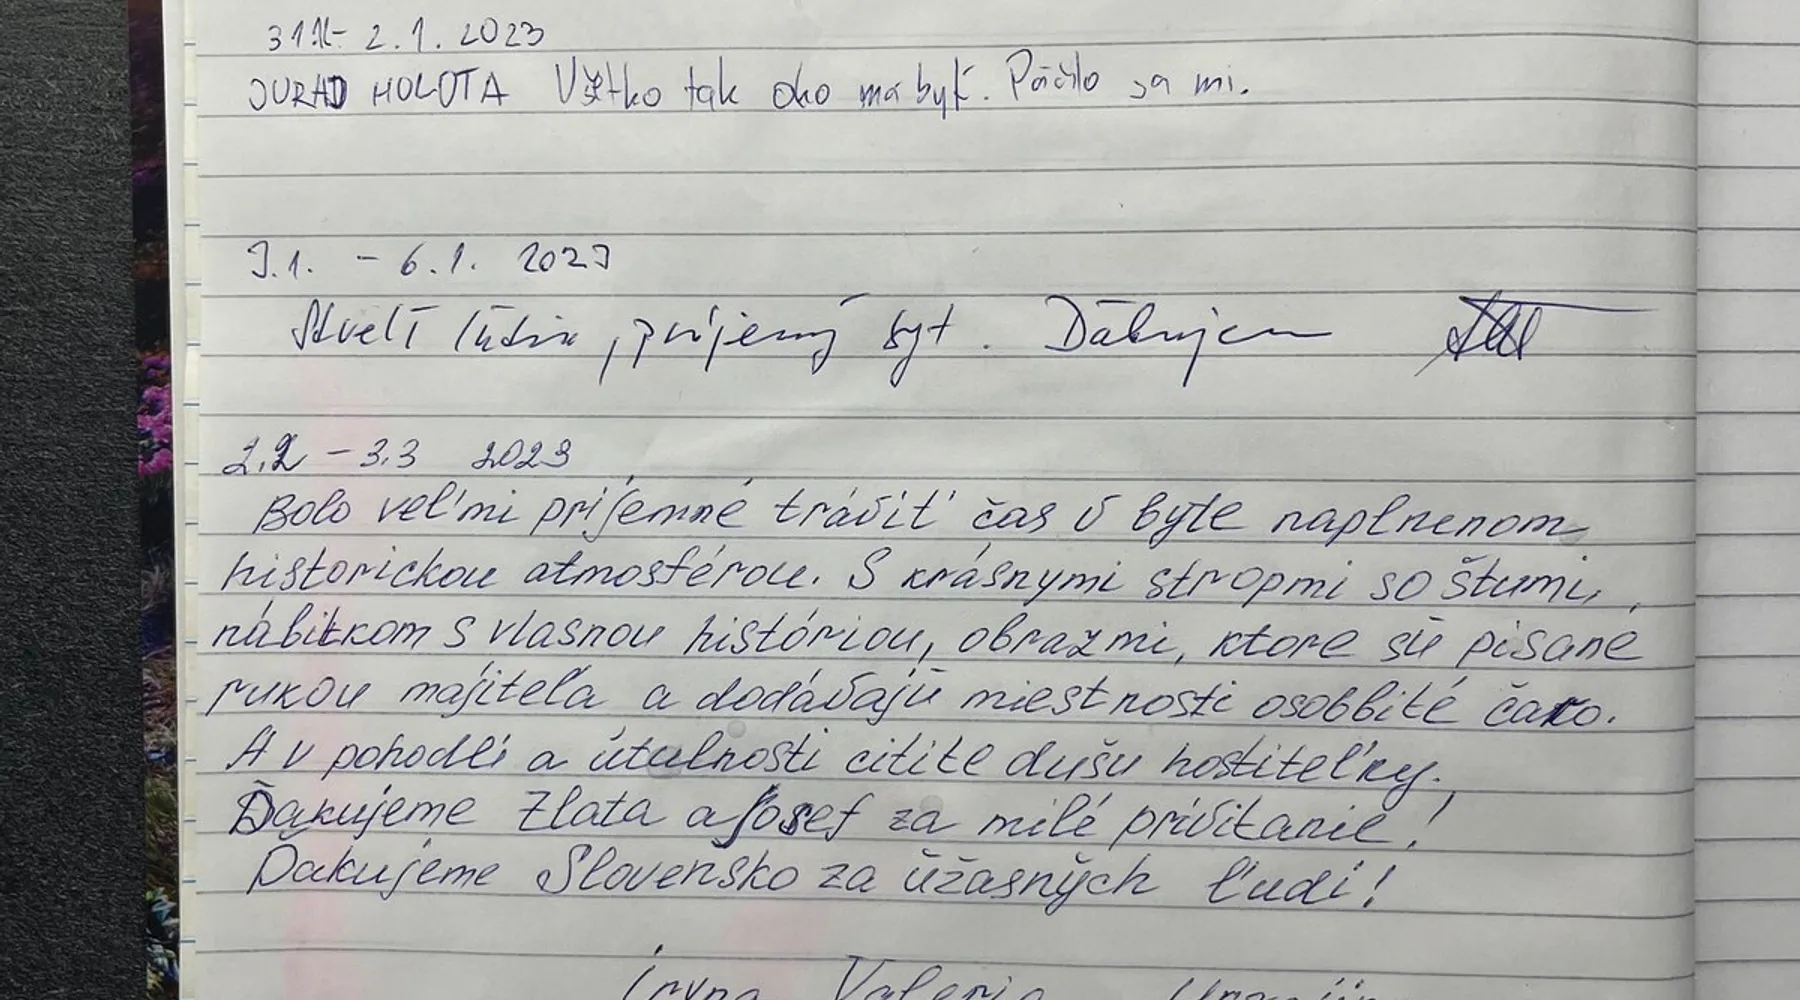 2.1.2023
JURAD HOLOTA Všetko tak ako má byť. Páčilo sa mi.
3.1. - 6.1. 2023
Skvelí ľudia, príjemný byt. Ďakujem
2.2 - 3.3 2023
Bolo veľmi príjemné tráviť čas v byte naplnenom
historickou atmosférou. S krásnymi stropmi so štumi,
nábitkom s vlasnou históriou, obrazmi, ktore sú pisané
rukou majiteľa a dodávajú miestnosti osobbité čaro.
A v pohodlí a útulnosti citite dušu hostiteľky.
Ďakujeme Zlata a Josef za milé privitanie!
Ďakujeme Slovensko za úžasných ľudí!
Iryna Valeria